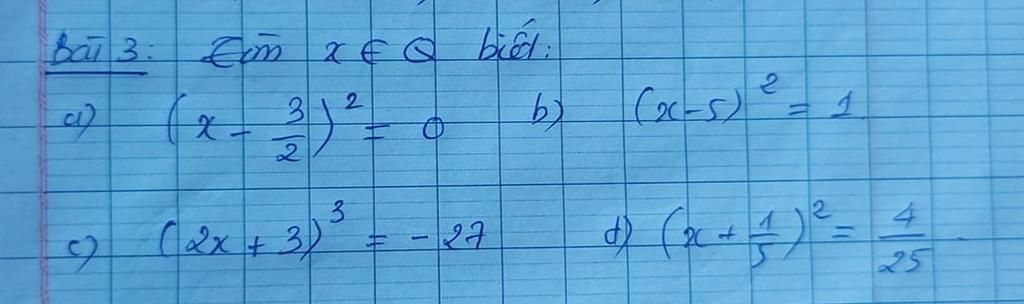 Bài 3: Tìm x ∈ Q biết:
a) (x - 3/2)² = 0 b) (x-5)² = 1
c) (2x + 3)³ = - 27 d) (x + 1/5)² = 4/25